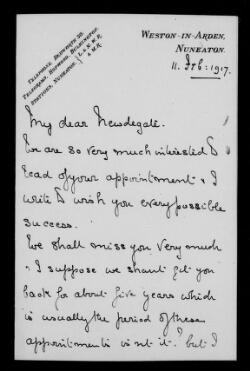 WESTON-IN-ARDEN,
NUNEATON.
TELEPHONE, BEDWORTH 20.
TELEGRAMS, HAYWARD, BULKINGTON.
STATIONS, NUNEATON
L. & N. W. R.
& M. R.
11. Feb: 1917.
My dear Newdegate.
We are so very much interested to
read of your appointment & I
write to wish you every possible
success.
We shall miss you very much
& I suppose we shan't get you
back for about five years which
is usually the period of these
appointments isn't it? but I